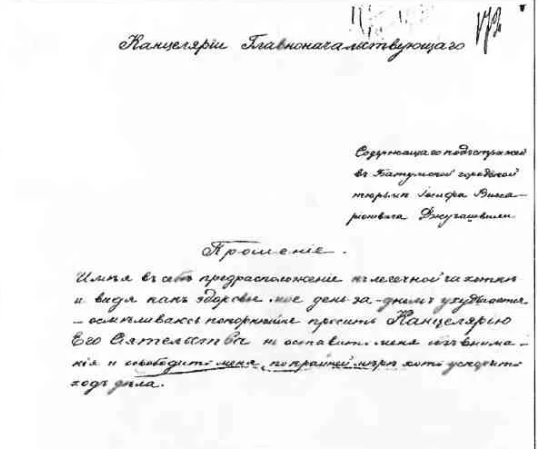 172
Канцелярiи Главноначальствующаго
Содержащагося подъ стражей
въ Батумской городской
тюрьмѣ Iосифа Висса-
рiоновича Джугашвили
Прошенiе.
Имѣя въ себѣ предрасположенiе къ легочной чахоткѣ
и видя какъ здоровье мое день-за-днемъ ухудшается
– осмѣливаюсь покорнѣйше просить Канцелярiю
Его Сiятельства не оставить меня безъ внима-
нiя и освободить меня, по крайней мѣрѣ хоть ускорить
ходъ дѣла.